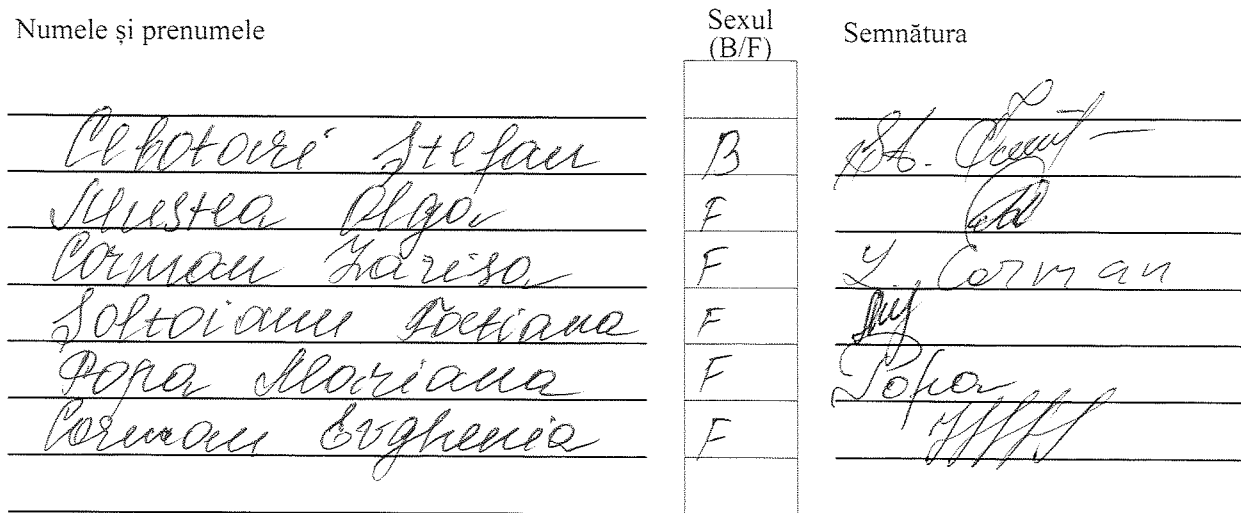 Numele și prenumele Sexul (B/F) Semnătura
Cebotari Ștefan B St.
Mustea Olga F
Corman Larisa F L. Corman
Soltoianu Tatiana F
Popa Mariana F Popa
Corman Evghenia F